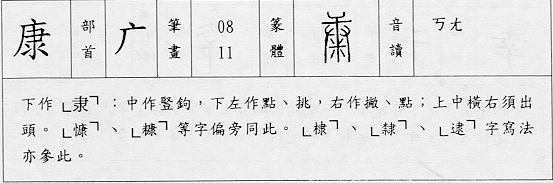 康 部首 广 筆畫 08 11 篆體 音讀 ㄎㄤ
下作「隶」：中作豎鉤，下左作點、挑，右作撇、點；上中橫右須出
頭。「慷」、「糠」等字偏旁同此。「棣」、「隸」、「逮」字寫法
亦參此。